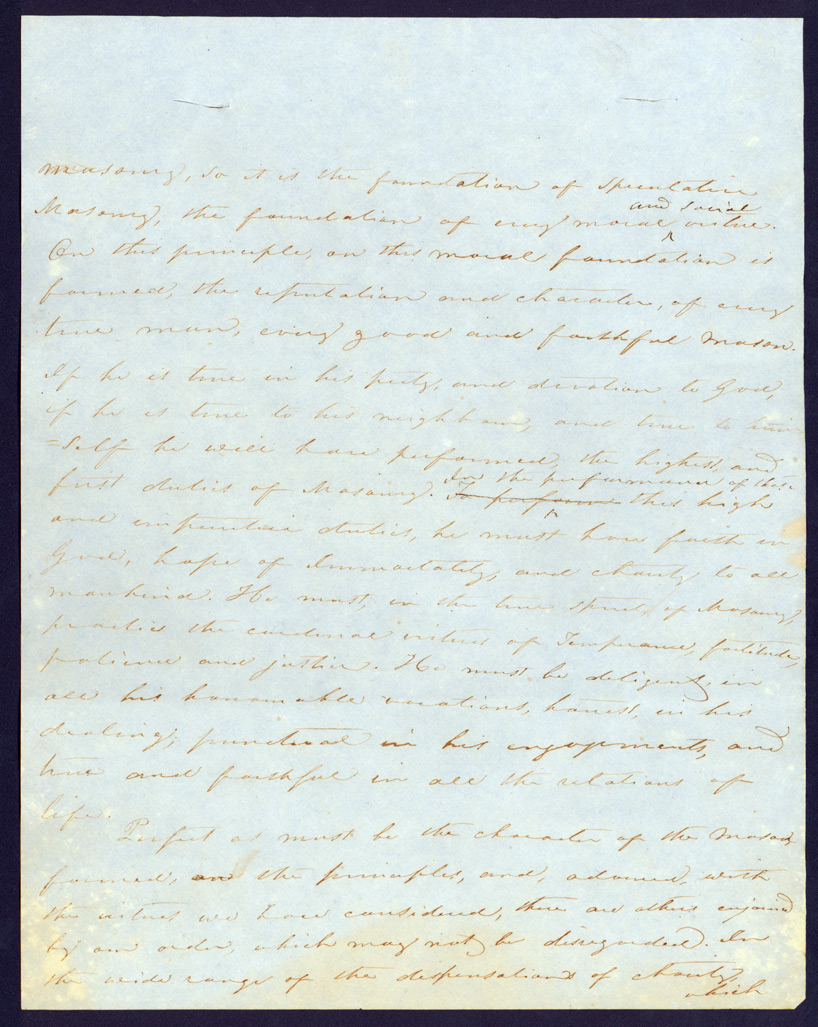 Masonry, so it is the foundation of Speculative
and social
Masonry, the foundation of every moral virtue.
On this principle, on this moral foundation is
formed, the reputation and character, of every
true man, every good and faithful Mason.
If he is true in his piety, and devotion to God,
if he is true to his neighbour, and true to him
=self he will have performed, the highest, and
In the performance of these
first duties of Masonry. To perform this high
and imperative duties, he must have faith in
God, hope of Immortality, and charity to all
mankind. He must, in the true spirit, of Masonry,
practice the cardinal virtues of Temperance, fortitude,
patience and justice. He must be diligent, in
all his honourable vocations, honest, in his
dealings, punctual in his engagements, and
true and faithful in all the relations of
life.
Perfect as must be the character of the Mason
formed, on the principles, and, adorned, with
the virtues we have considered, there are others enjoined
by our order, which may not be disregarded. In
the wide range of the dispensations of charity,
which